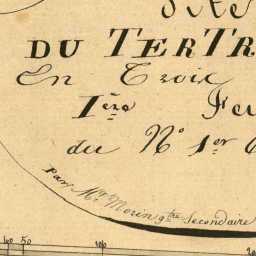 dite
DU TERTR
En Trois
Iere Feu
du No 1er
Par Mr. Morin g.tre Secondaire
60 50 100